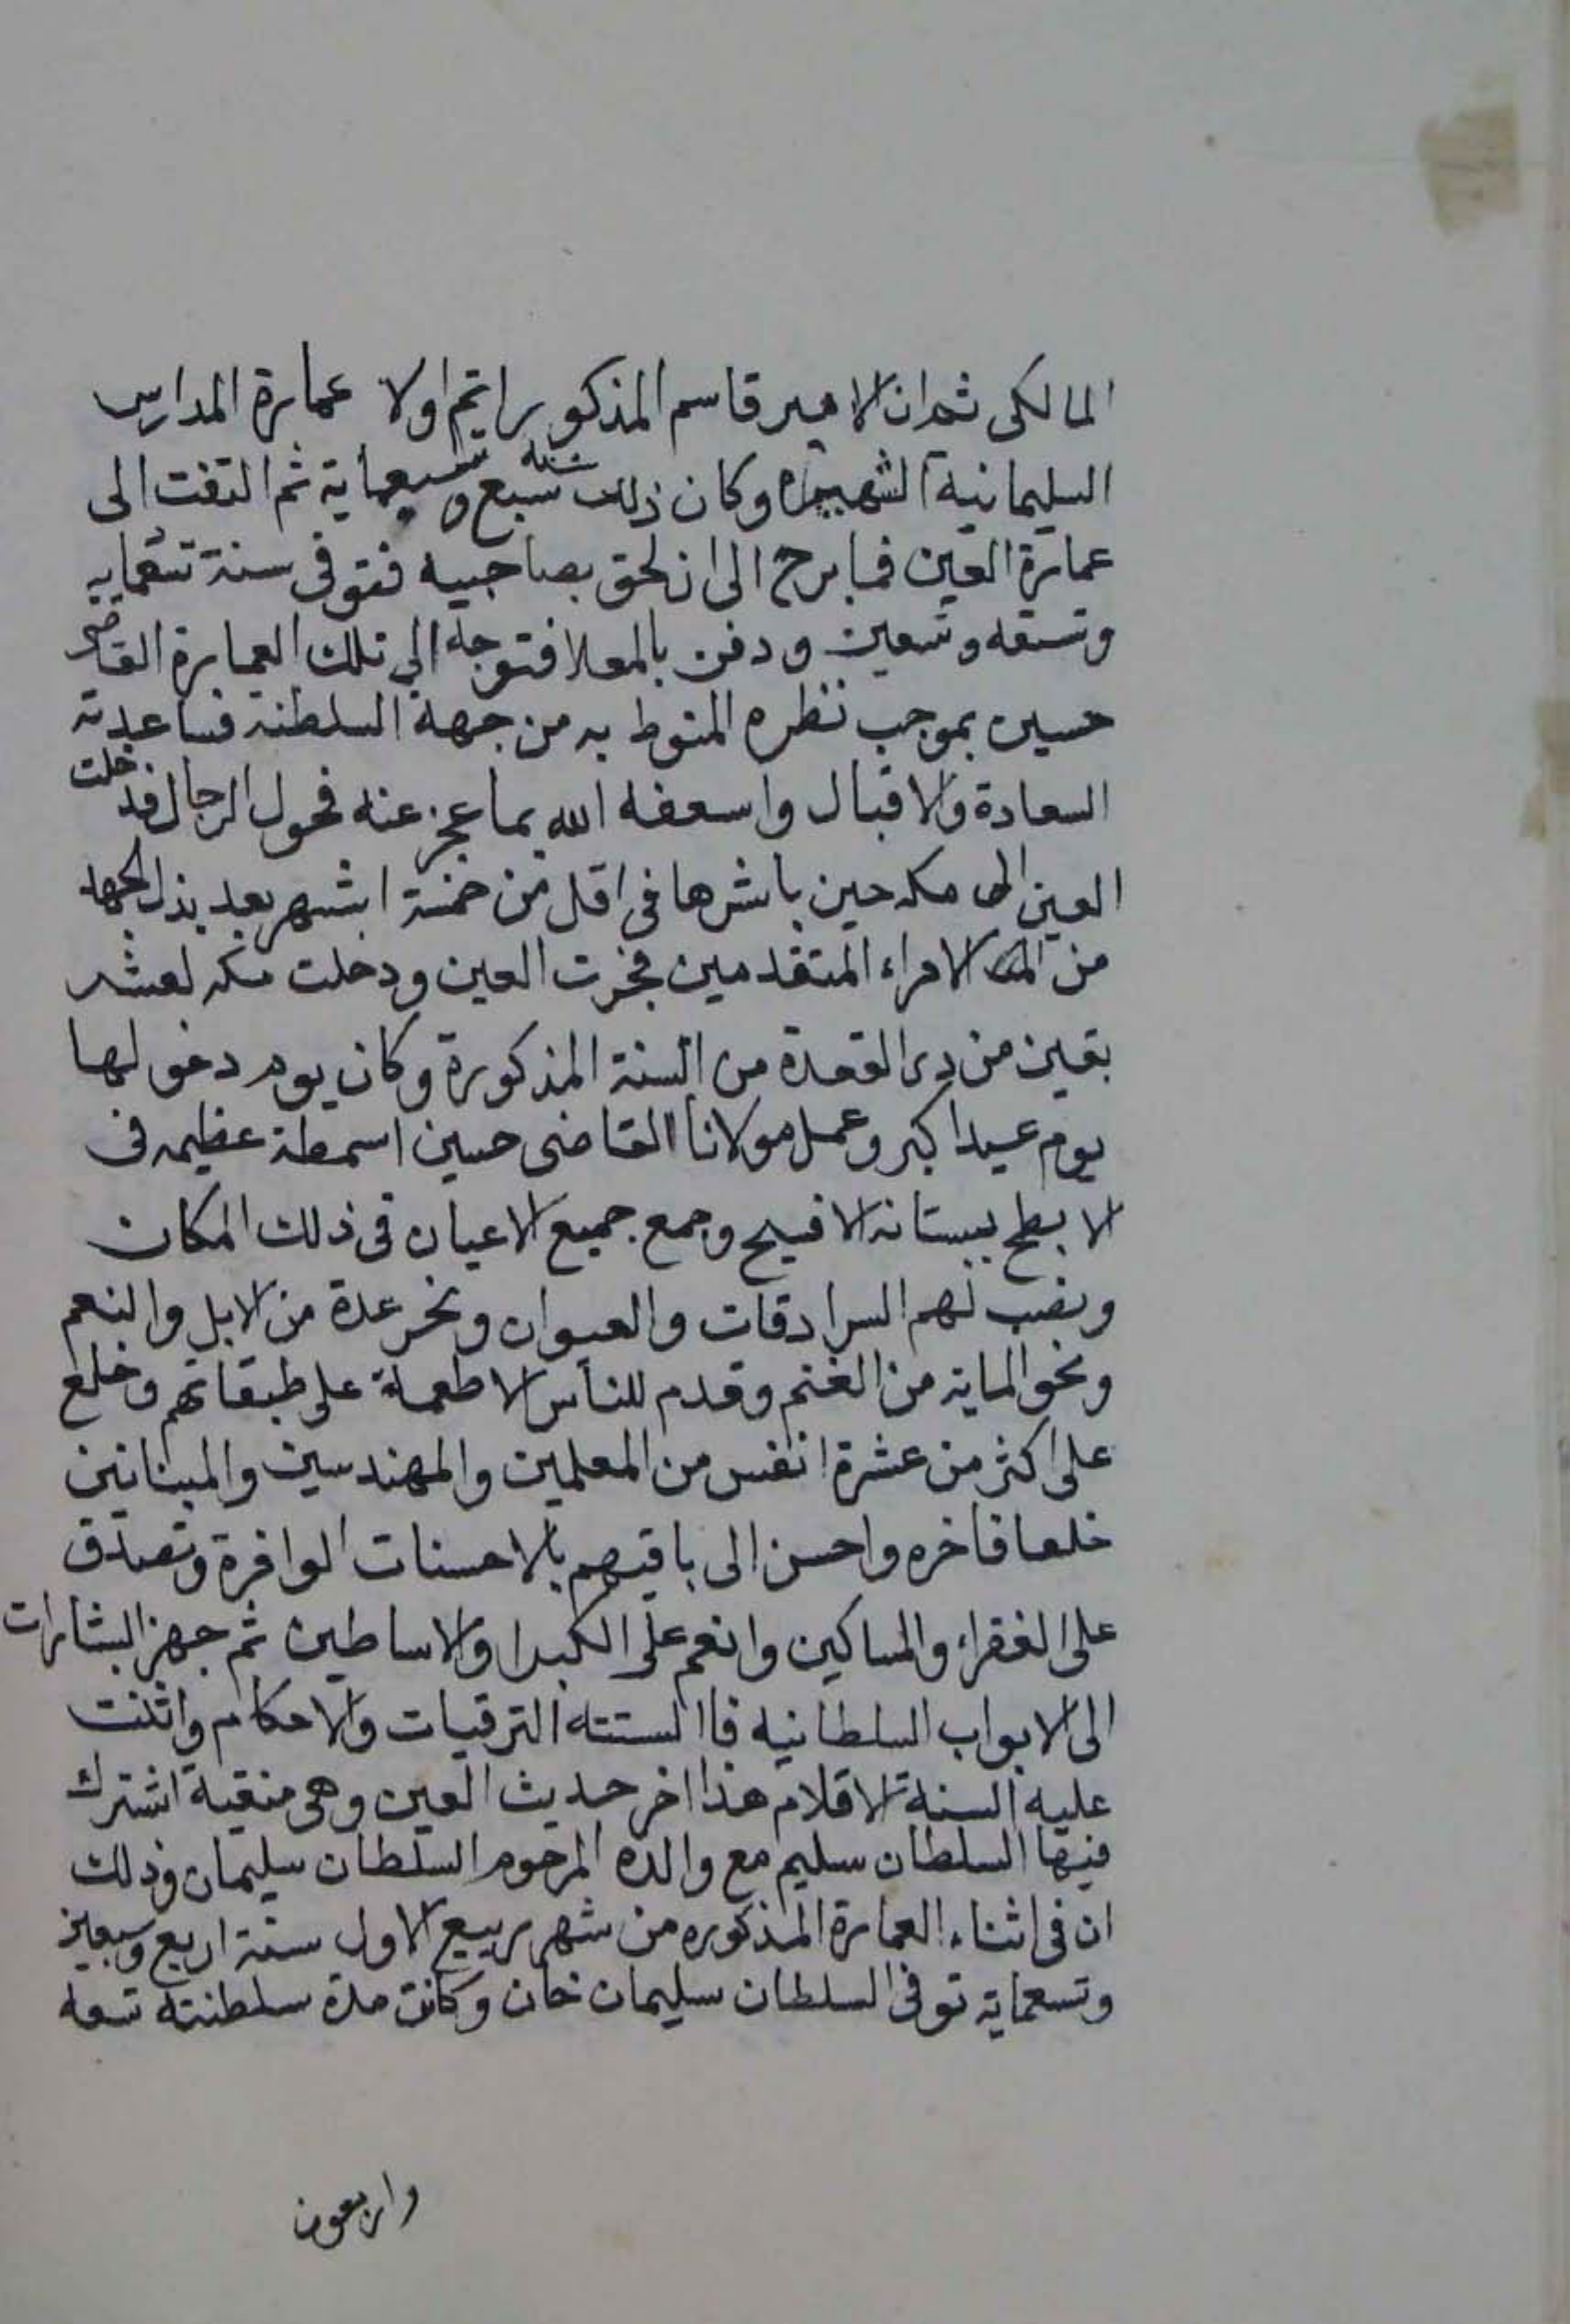 المالكى ثم ان الامير قاسم المذكور اتم اولا عمارة المدارس
السليمانية الشهيره وكان ذلك سنه سبع وسبعماية ثم التفت الى
عمارة العين فما برح الى ان لحق بصاحبيه فتوفى سنة تسعمايه
وتسعه وتسعين ودفن بالمعلا فتوجه الى تلك العمارة القاضى
حسين بموجب نظره المنوط به من جهة السلطنه فساعدته
السعادة والاقبال واسعفه الله بما عجز عنه فحول الرجال فدخلت
العين الى مكه حين باشرها فى اقل من خمسة اشهر بعد بذل الجهد
من الامراء المتقدمين فجرت العين ودخلت مكه لعشر
بقين من ذى القعدة من السنة المذكورة وكان يوم دخولها
يوم عيد اكبر وعمل مولانا القاضى حسين اسمطة عظيمه فى
الابطح ببستانه الافيح وجمع جميع الاعيان فى ذلك المكان
ونصب لهم السرادقات والصيوان ونحر عدة من الابل والنعم
ونحو الماية من الغنم وقدم للناس الاطعمة على طبقاتهم وخلع
على اكثر من عشرة انفس من المعلمين والمهندسين والبنائين
خلعا فاخره واحسن الى باقيهم بالاحسنات الوافرة وتصدق
على الفقراء والمساكين وانعم على الكبرا والاساطين ثم جهز البشارات
الى الابواب السلطانيه الترقيات والاحكام واثنت
عليه السنة الاقلام هذا اخر حديث العين وهى منقبة اشترك
فيها السلطان سليم مع والده المرحوم السلطان سليمان وذلك
ان فى اثناء العمارة المذكوره من شهر ربيع الاول سنة اربع وسبعين
وتسعماية توفى السلطان سليمان خان وكانت مدة سلطنته تسعه
واربعون